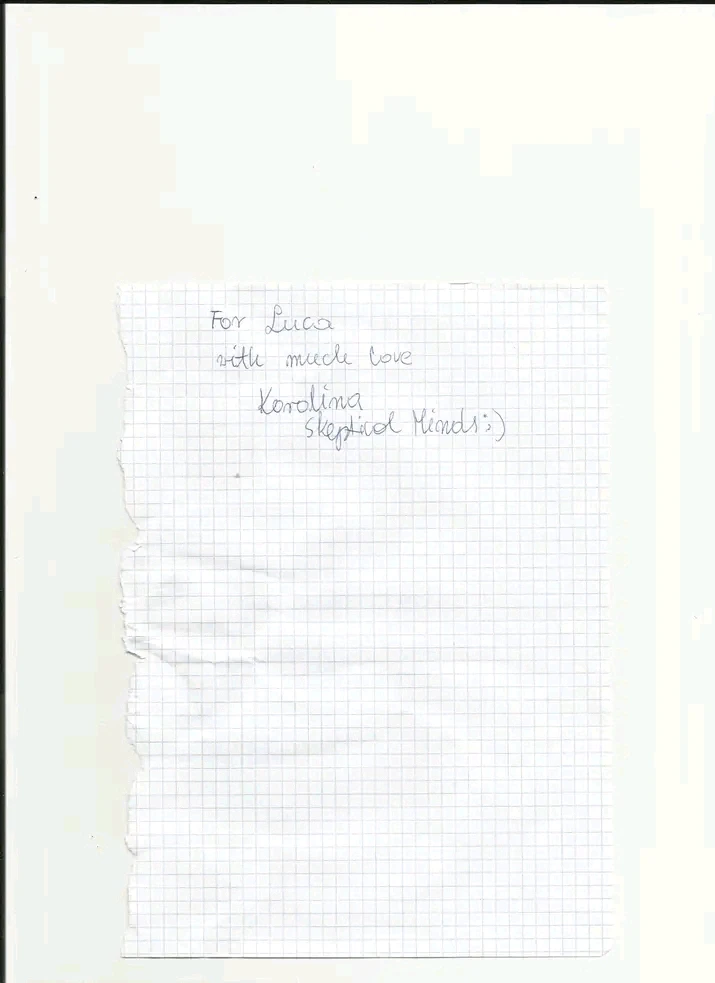 For Luca
with much love
Karolina
Skeptical Minds ;)